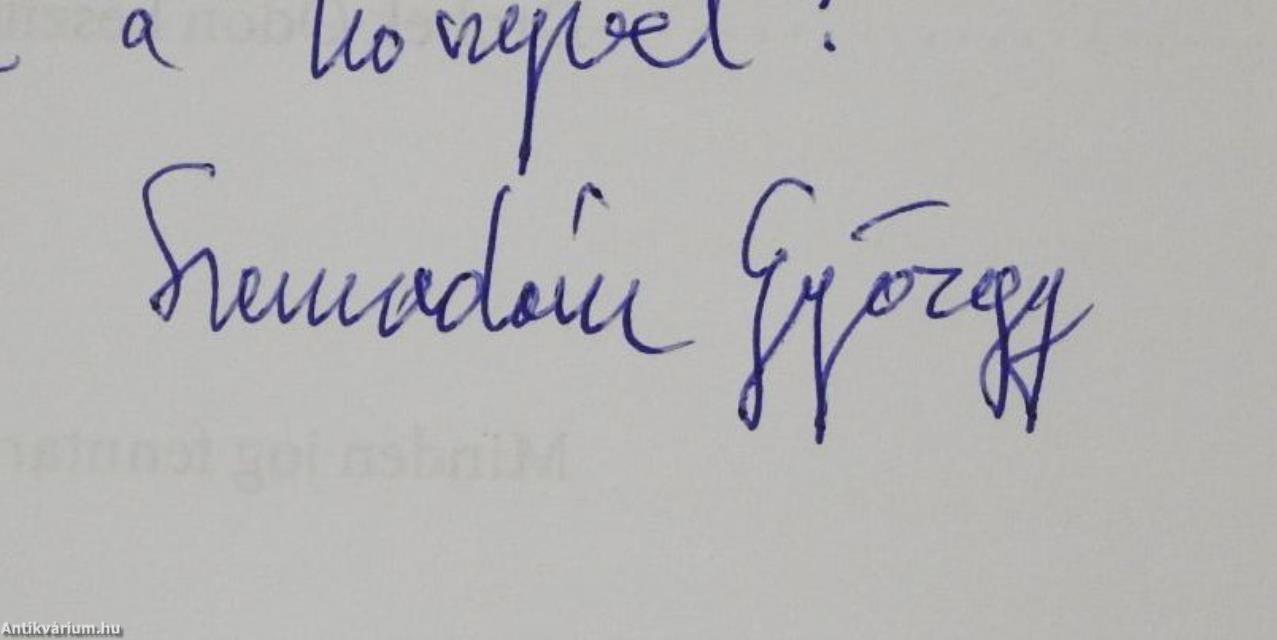 a könyvel!
Szemadám György
Minden jog fenntar
Antikvárium.hu